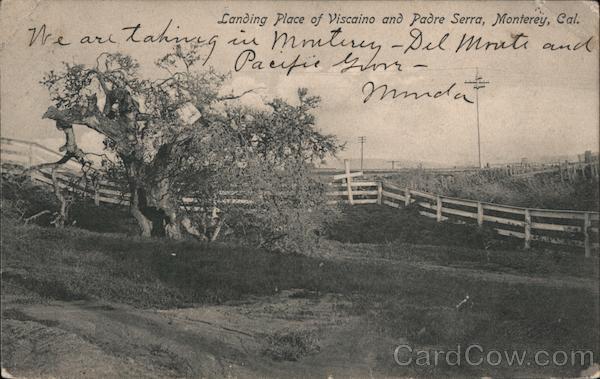 Landing Place of Viscaino and Padre Serra, Monterey, Cal.
We are taking in Monterey - Del Monte and
Pacific Grov -
CardCow.com